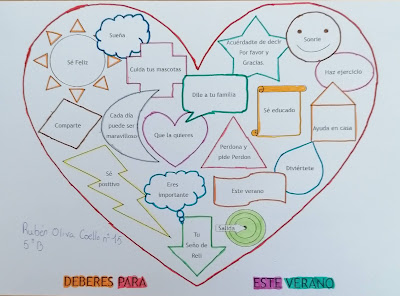 Sueña
Acuérdate de decir
Por favor y
Gracias.
Sonríe
Sé Feliz
Cuida tus mascotas
Haz ejercicio
Dile a tu familia
Sé educado
Comparte
Cada día
puede ser
maravilloso
Que la quieres
Perdona y
pide Perdon
Ayuda en casa
Sé
positivo
Eres
Importante
Este verano
Diviértete
Rubén Oliva Coello nº 15
5º B
Tu
Seño de
Reli
Salida
DEBERES PARA
ESTE VERANO